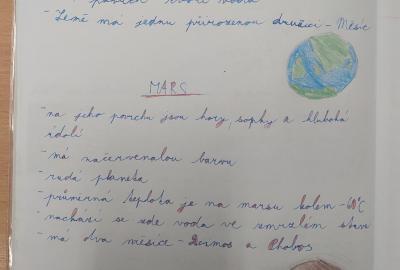 povrch tvoří voda
- Země má jednu přirozenou družici - Měsíc
MARS
- na jeho povrchu jsou hory, sopky a hluboká
údolí
- má načervenalou barvu
- rudá planeta
- průměrná teplota je na marsu kolem -60°C
- nachází se zde voda ve zmrzlém stavu
- má dva měsíce - Deimos a Phobos